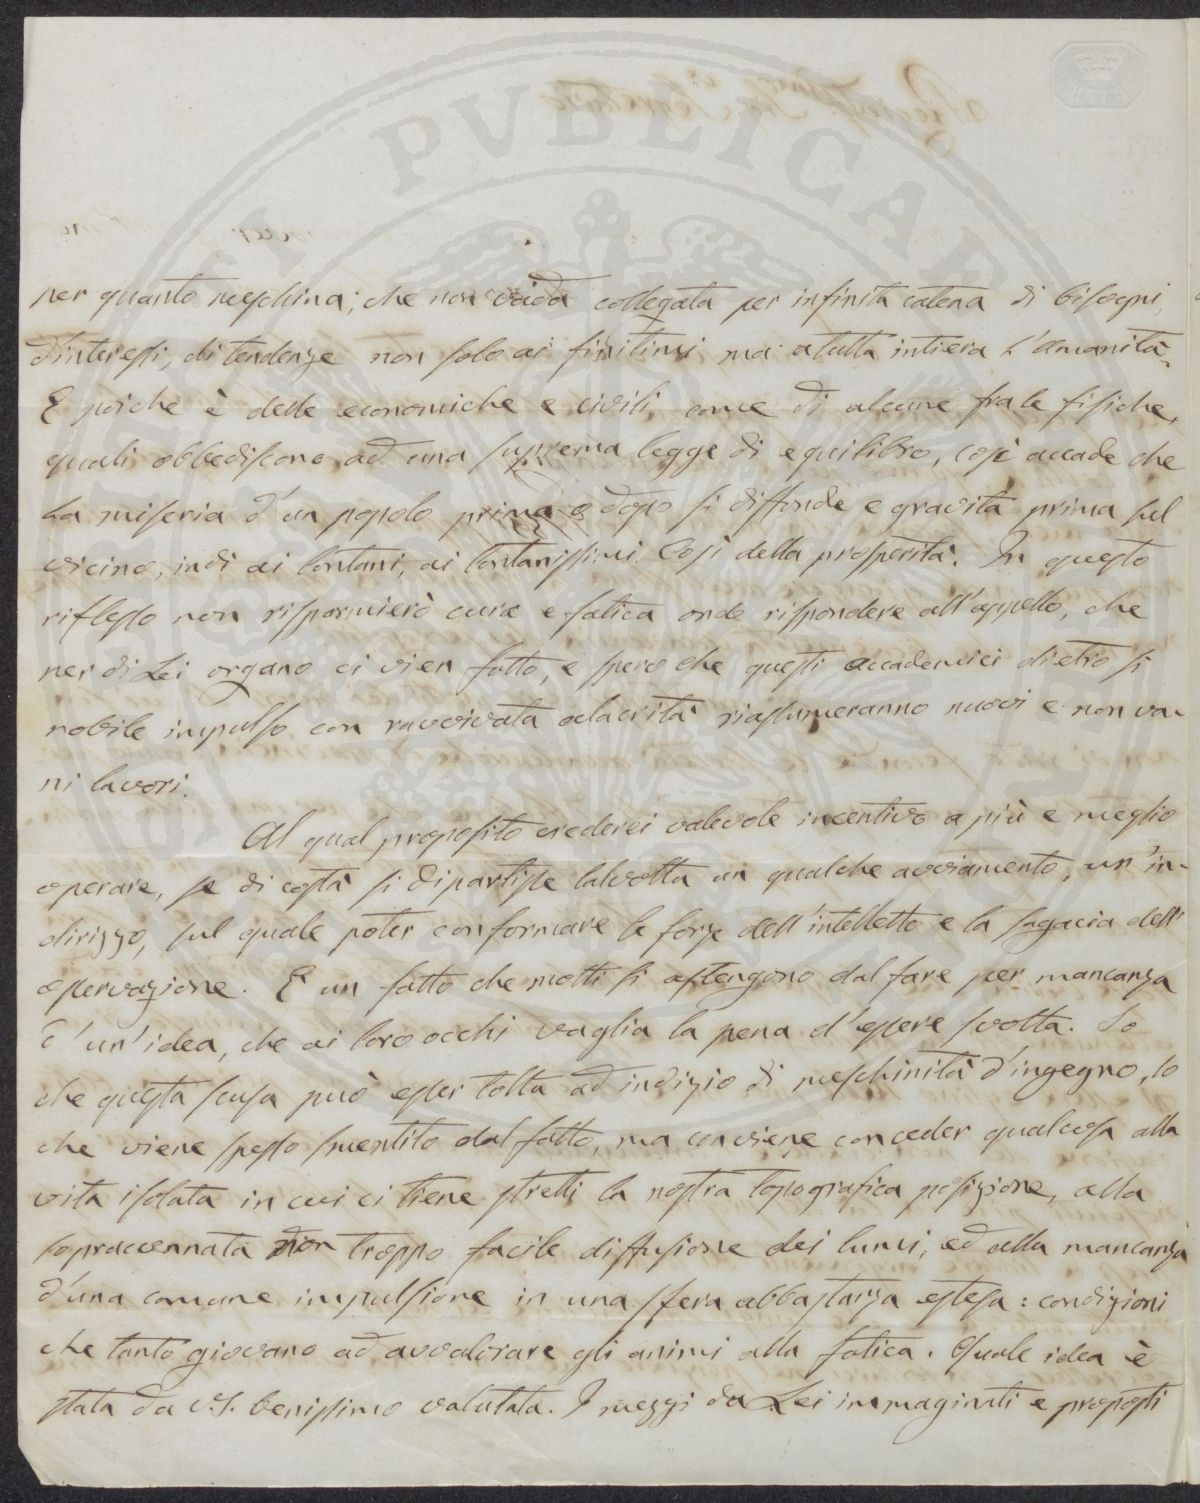 per quanto meschina; che non vada collegata per infinita catena di bisogni,
d'interessi, di tendenze non solo ai finitimi ma a tutta intiera l'umanità.
E poiche è delle economiche e civili, come di alcune fra le fisiche,
quali obbediscono ad una suprema legge di equilibro, così accade che
la miseria d'un popolo prima o dopo si diffonde e gravita prima sul
vicino, indi ai lontani, ai lontanissimi. Così della prosperità. In questo
riflesso non risparmierò cura e fatica onde rispondere all'appello, che
per di Lei organo ci vien fatto, e spero che questi accademici dietro sì
nobile impulso con ravvivata alacrità riassumeranno nuovi e non va-
ni lavori.
Al qual proposito crederei valevole incentivo a più e meglio
operare, se di costà si dipartisse talvolta un qualche avviamento, un'in-
dirizzo, sul quale poter conformare le forze dell'intelletto e la sagacia dell'
osservazione. È un fatto che molti si astengono dal fare per mancanza
d'un'idea, che ai loro occhi vaglia la pena d'essere svolta. So
che questa scusa può esser tolta ad indizio di meschinità d'ingegno, lo
che viene spesso smentito dal fatto, ma conviene conceder qualcosa alla
vita isolata in cui ci tiene stretti la nostra topografica posizione, alla
sopraccennata non troppo facile diffusione dei lumi, ed alla mancanza
d'una comune impulsione in una sfera abbastanza estesa: condizioni
che tanto giovano ad avvalorare gli animi alla fatica. Quale idea è
stata da V.S. benissimo valutata. I mezzi da Lei immaginati e proposti
PUBLICAE